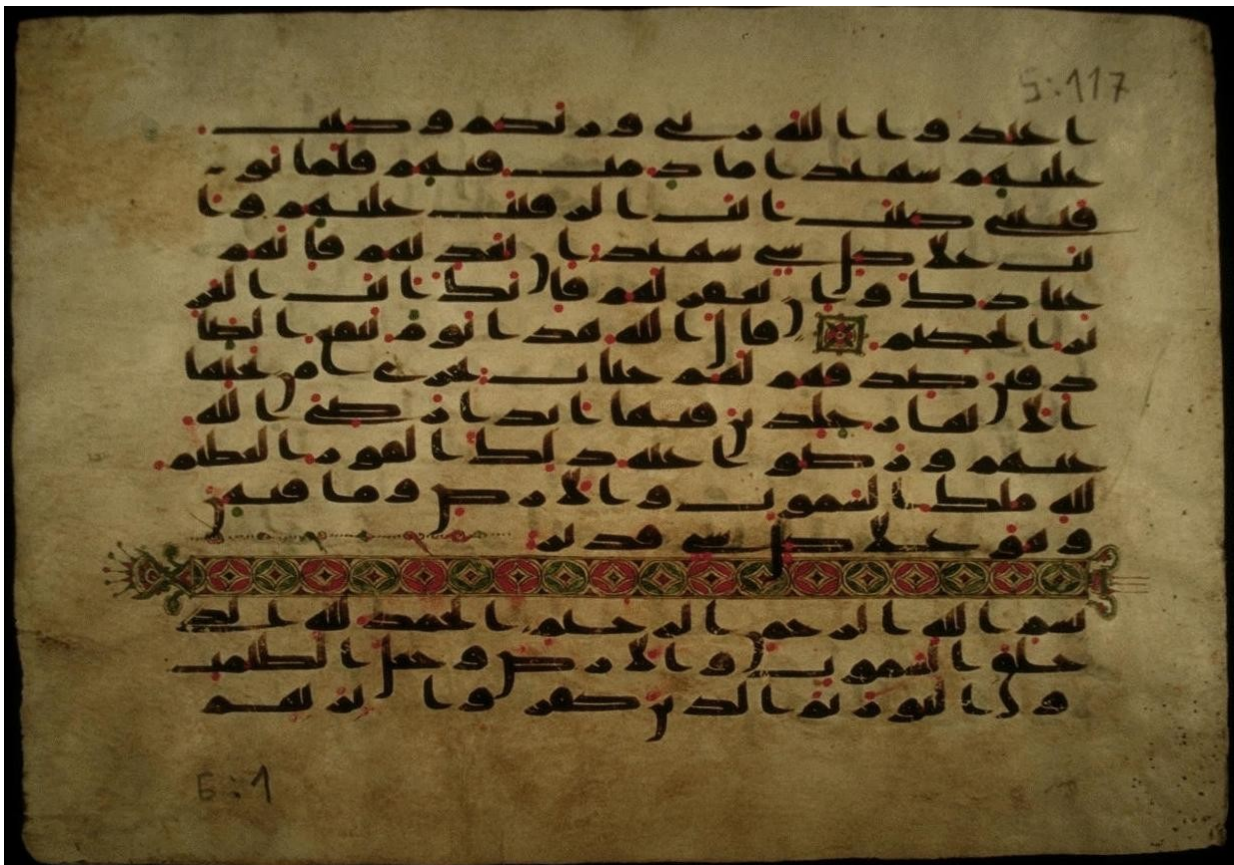 5:117
اعبدوا الله ربي وربكم وكنت
عليهم شهيدا ما دمت فيهم فلما تو
فيتني كنت انت الرقيب عليهم وا
نت على كل شي شهيد ان تعذبهم فانهم
عبادك وان تغفر لهم فانك انت العز
يز الحكيم قال الله هذا يوم ينفع الصا
دقين صدقهم لهم جنت تجري من تحتها
الانهر خلدين فيها ابدا رضي الله
عنهم ورضوا عنه ذلك الفوز العظيم
لله ملك السموت والارض وما فيهن
وهو على كل شي قدير
بسم الله الرحمن الرحيم الحمد لله الذي
خلق السموت والارض وجعل الظلمت
والنور ثم الذين كفروا بربهم
6:1